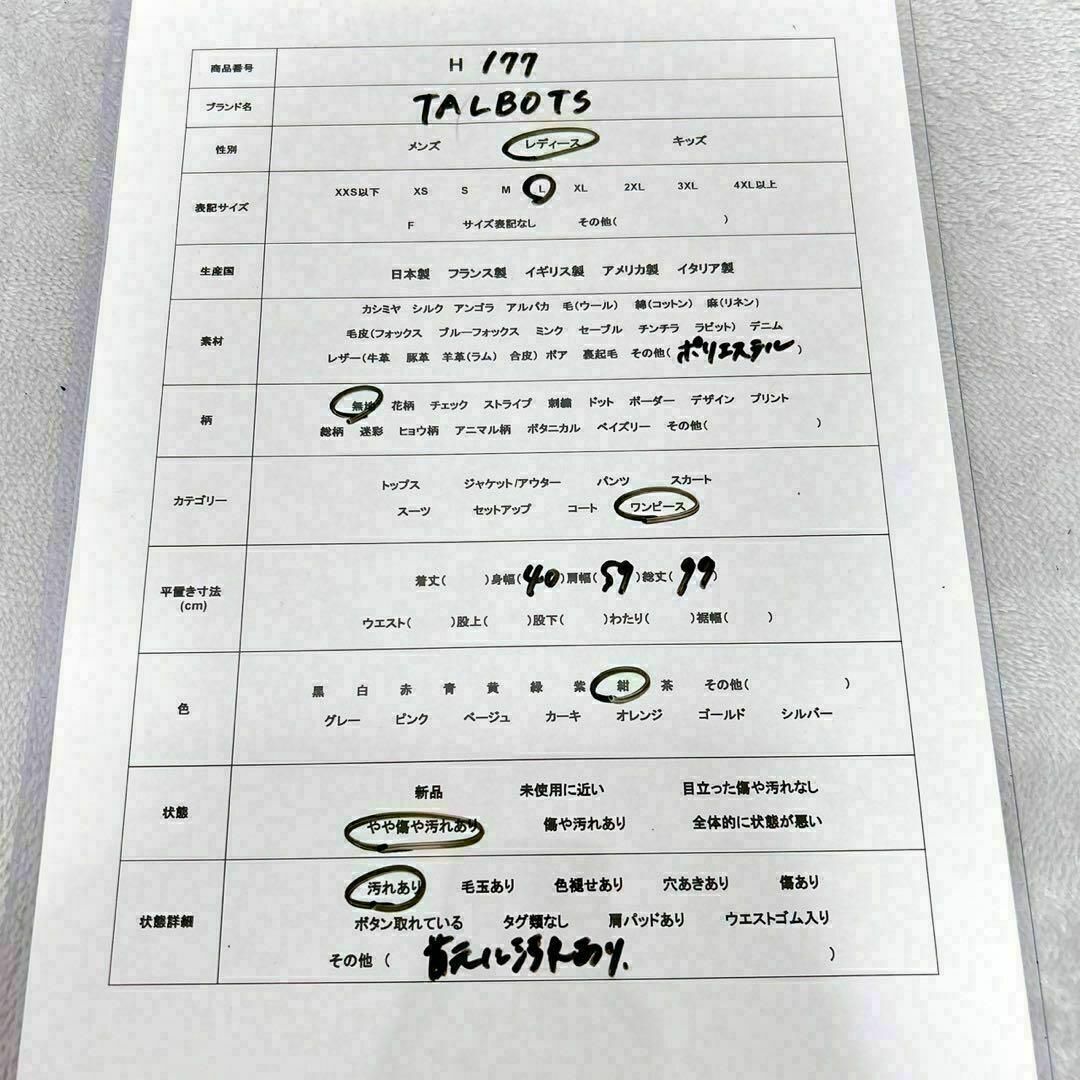 商品番号 H 177
ブランド名 TALBOTS
性別 メンズ レディース キッズ
表記サイズ XXS以下 XS S M L XL 2XL 3XL 4XL以上
F サイズ表記なし その他( )
生産国 日本製 フランス製 イギリス製 アメリカ製 イタリア製
素材 カシミヤ シルク アンゴラ アルパカ 毛(ウール) 綿(コットン) 麻(リネン)
毛皮(フォックス ブルーフォックス ミンク セーブル チンチラ ラビット) デニム
レザー(牛革 豚革 羊革(ラム) 合皮) ボア 裏起毛 その他( ポリエステル )
柄 無地 花柄 チェック ストライプ 刺繍 ドット ボーダー デザイン プリント
総柄 迷彩 ヒョウ柄 アニマル柄 ボタニカル ペイズリー その他( )
カテゴリー トップス ジャケット/アウター パンツ スカート
スーツ セットアップ コート ワンピース
平置き寸法
(cm)
着丈( )身幅( 40 )肩幅( 59 )総丈( 99 )
ウエスト( )股上( )股下( )わたり( )裾幅( )
色 黒 白 赤 青 黄 緑 紫 紺 茶 その他( )
グレー ピンク ベージュ カーキ オレンジ ゴールド シルバー
状態 新品 未使用に近い 目立った傷や汚れなし
やや傷や汚れあり 傷や汚れあり 全体的に状態が悪い
状態詳細 汚れあり 毛玉あり 色褪せあり 穴あきあり 傷あり
ボタン取れている タグ類なし 肩パッドあり ウエストゴム入り
その他 ( 首元に汚れあり. )